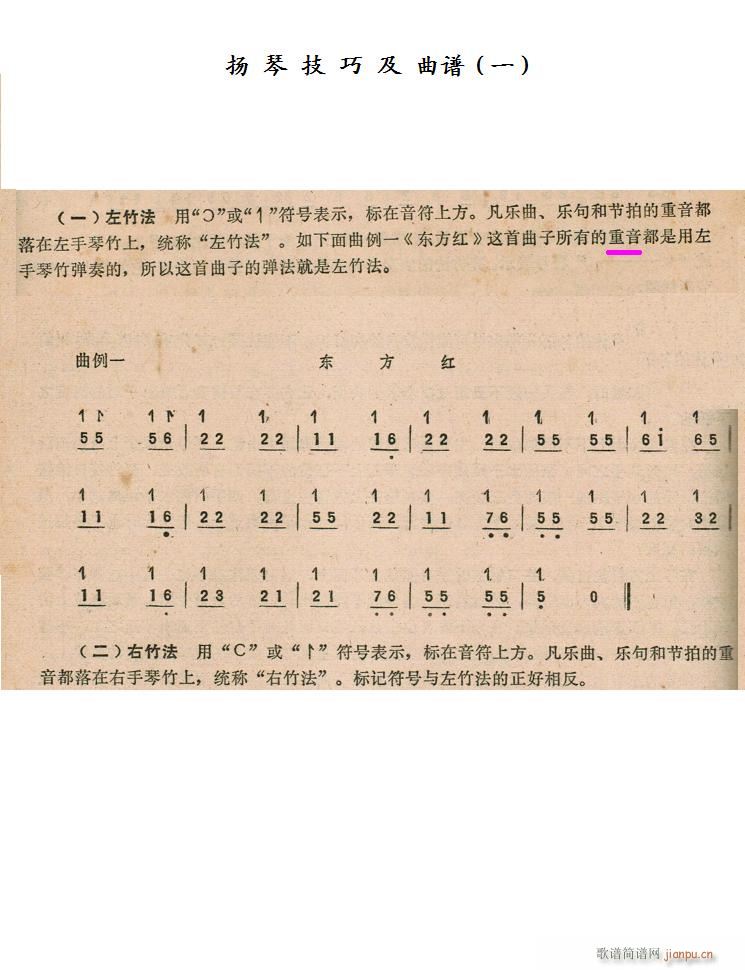 扬琴技巧及曲谱(一)
(一)左竹法 用“Ɔ”或“1”符号表示，标在音符上方。凡乐曲、乐句和节拍的重音都
落在左手琴竹上，统称“左竹法”。如下面曲例一《东方红》这首曲子所有的重音都是用左
手琴竹弹奏的，所以这首曲子的弹法就是左竹法。
曲例一 东 方 红
1 ↾ 1 ↾ 1 1 1 1 1 1 1 1 1 1
55 56 | 22 22 | 11 16 | 22 22 | 55 55 | 6i 65 |
1 1 1 1 1 1 1 1 1 1 1 1
11 16 | 22 22 | 55 22 | 11 76 | 55 55 | 22 32 |
1 1 1 1 1 1 1 1 1
11 16 | 23 21 | 21 76 | 55 55 | 5 0 ‖
(二)右竹法 用“C”或“↾”符号表示，标在音符上方。凡乐曲、乐句和节拍的重
音都落在右手琴竹上，统称“右竹法”。标记符号与左竹法的正好相反。
歌谱简谱网 jianpu.cn